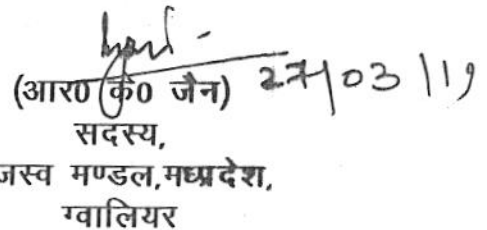 (आर0 के0 जैन) 27/03/19
सदस्य,
जस्व मण्डल,मध्यप्रदेश,
ग्वालियर